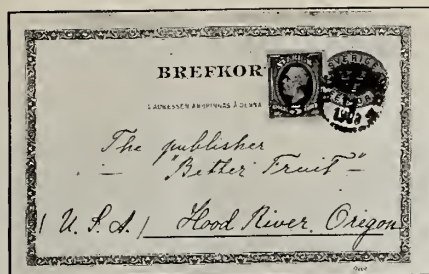 BREFKOR
SVERIGE
5
The publisher
"Better Fruit"
/ U. S. A. / Hood River, Oregon